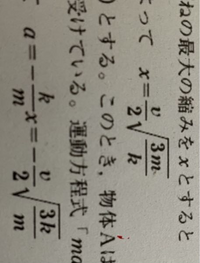 ねの最大の縮みをxとすると
って x=\frac{v}{2}\sqrt{\frac{3m}{k}}
)とする。このとき，物体Aは
受けている。運動方程式「ma
a=-\frac{k}{m}x=-\frac{v}{2}\sqrt{\frac{3k}{m}}